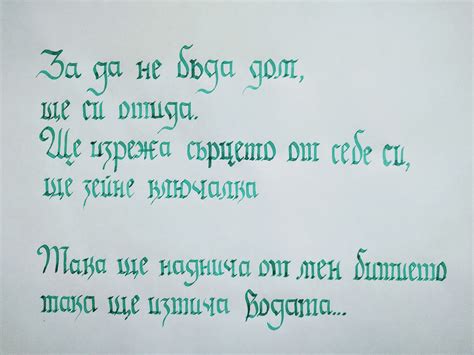 За да не бъда дом,
ще си отида.
Ще изрежа сърцето от себе си,
ще зейне ключалка
Така ще наднича от мен битието
така ще изтича водата...